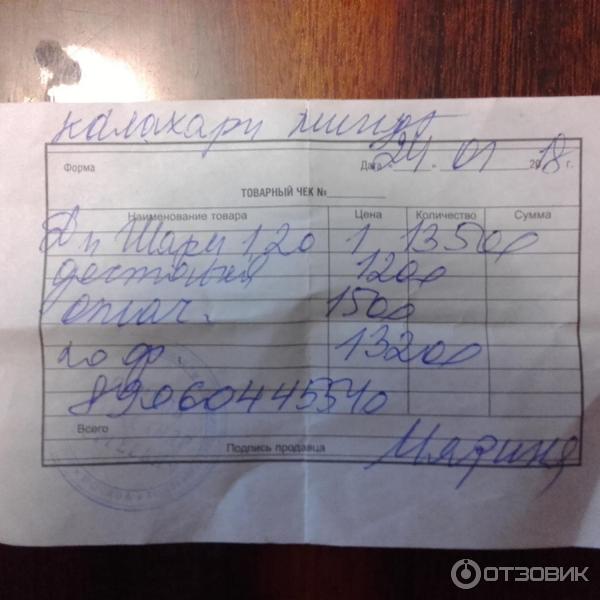 калахари
Форма Дата 24.01 2018 г.
ТОВАРНЫЙ ЧЕК №
Наименование товара Цена Количество Сумма
Дп Шари 120 1 13500
доставка 1200
оплач. 1500
по ф. 13200
89060445540
Всего
Подпись продавца Марина
ОТЗОВИК